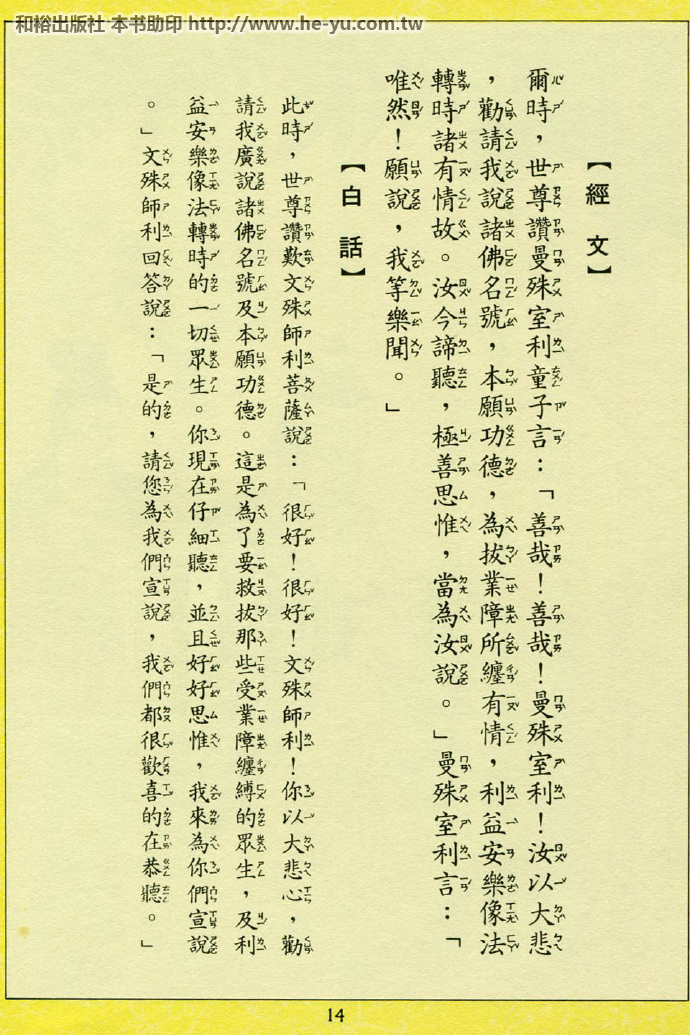 和裕出版社 本书助印 http://www.he-yu.com.tw
【經文】
爾時，世尊讚曼殊室利童子言：「善哉！善哉！曼殊室利！汝以大悲
，勸請我說諸佛名號，本願功德，為拔業障所纏有情，利益安樂像法
轉時諸有情故。汝今諦聽，極善思惟，當為汝說。」曼殊室利言：「
唯然！願說，我等樂聞。」
【白話】
此時，世尊讚歎文殊師利菩薩說：「很好！很好！文殊師利！你以大悲心，勸
請我廣說諸佛名號及本願功德。這是為了要救拔那些受業障纏縛的眾生，及利
益安樂像法轉時的一切眾生。你現在仔細聽，並且好好思惟，我來為你們宣說
。」文殊師利回答說：「是的，請您為我們宣說，我們都很歡喜的在恭聽。」
14